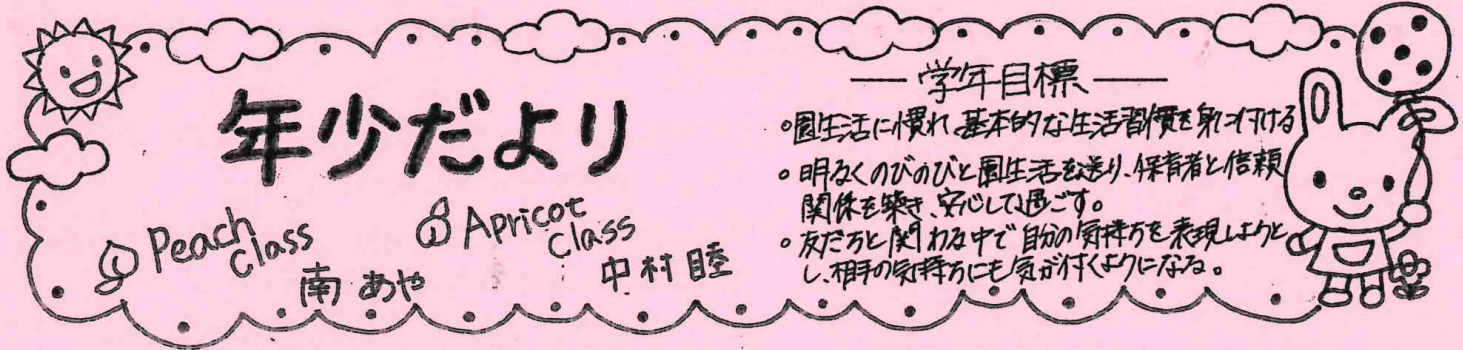 年少だより
Peach
Class
南 あや
Apricot
Class
中村 睦
学年目標
◦園生活に慣れ、基本的な生活習慣を身に付ける
◦明るくのびのびと園生活を送り、保育者と信頼
関係を築き、安心して過ごす。
◦友だちと関わる中で自分の気持ちを表現しようと
し、相手の気持ちにも気が付くようになる。